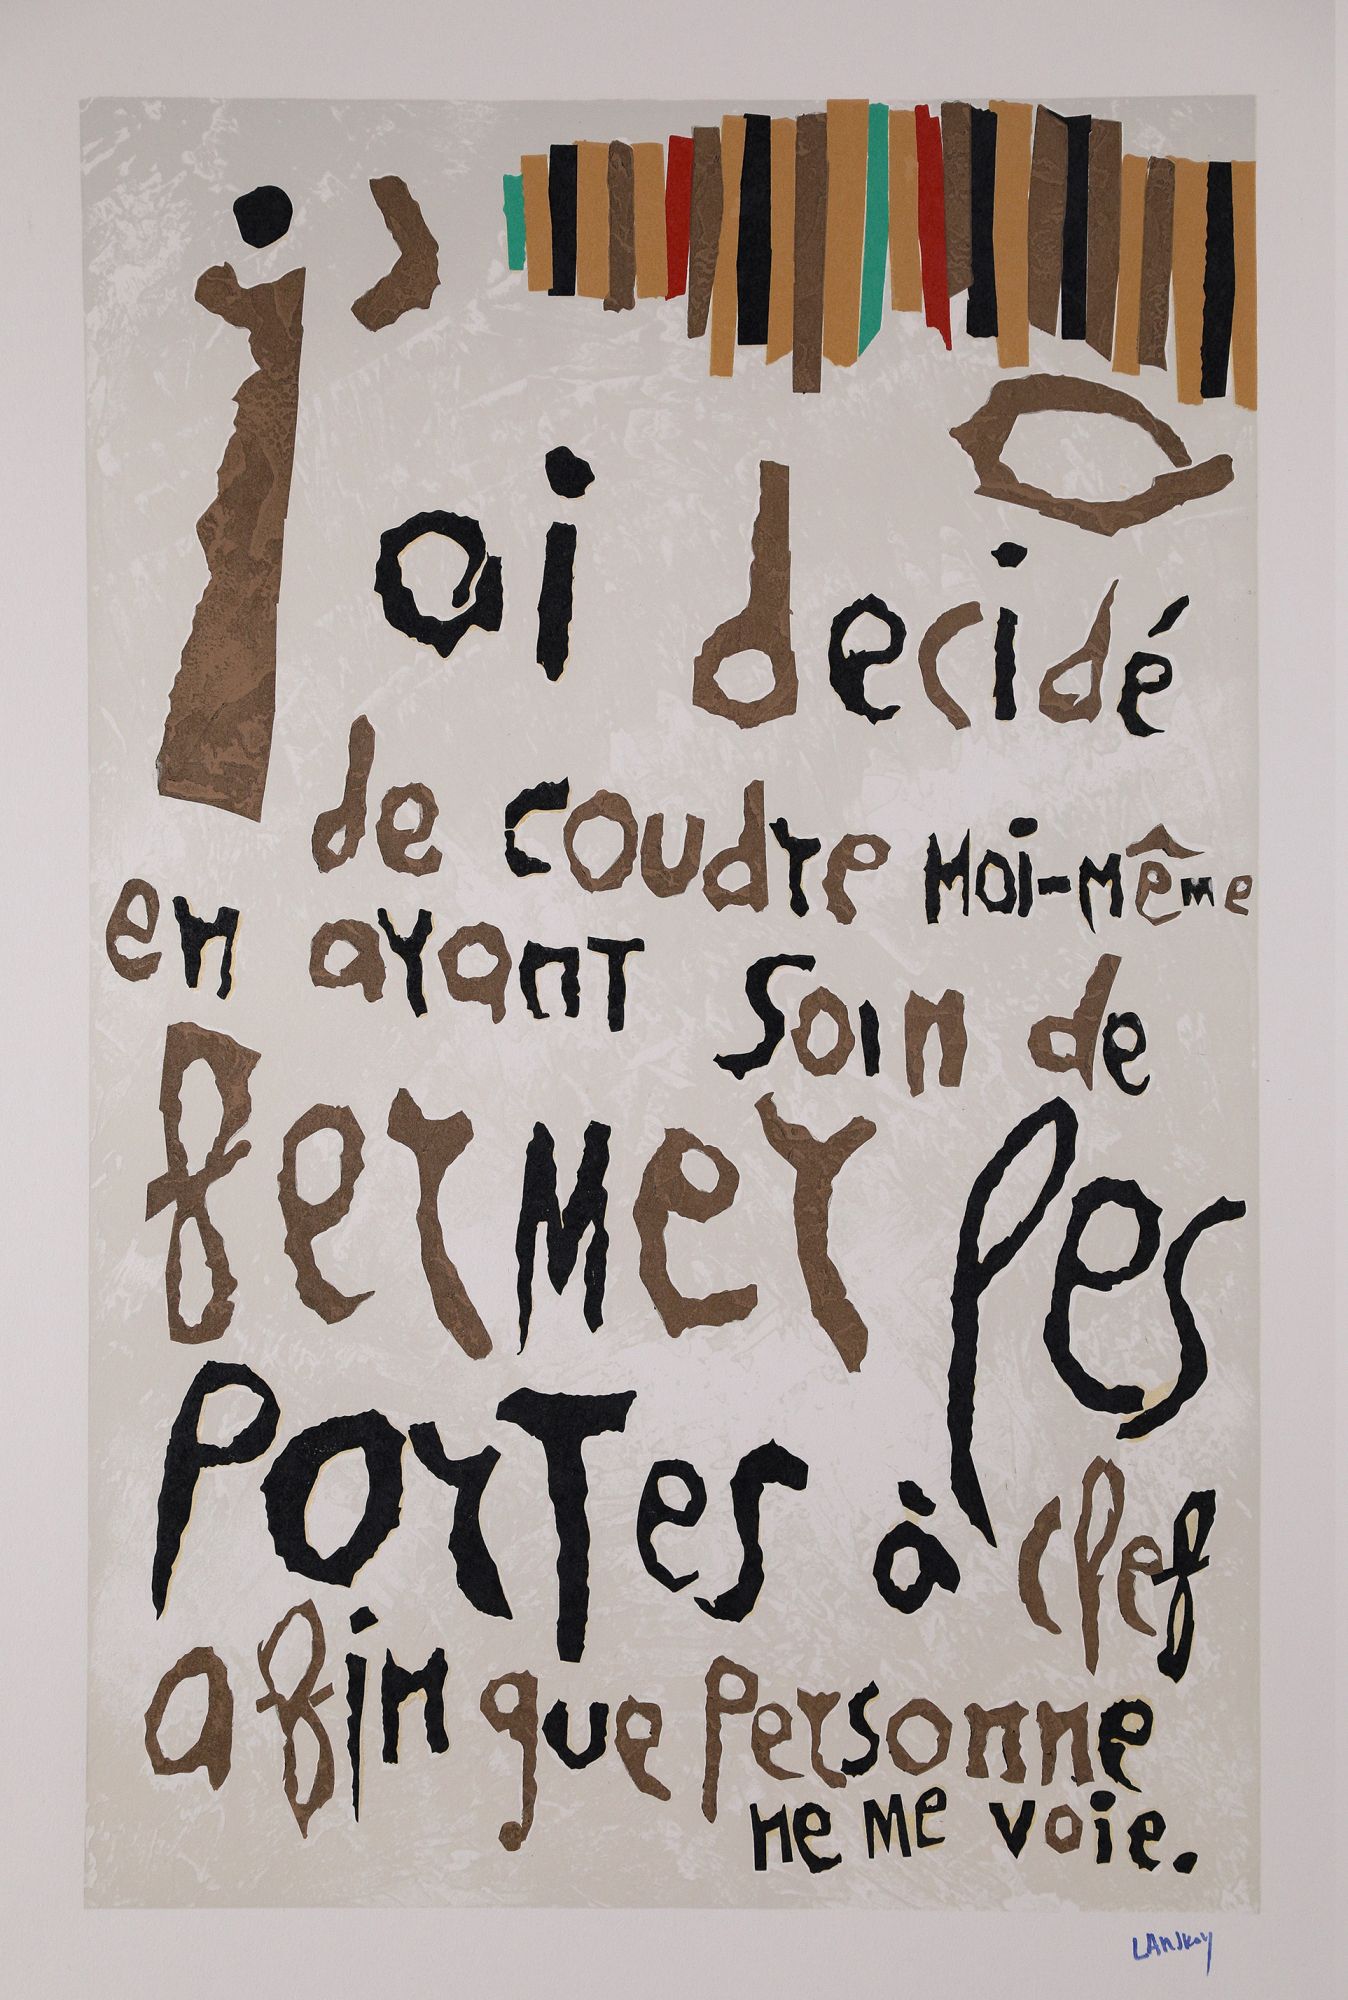 j'
ai decidé
de coudre moi-même
en ayant soin de
fermer les
portes à clef
afin que personne
ne me voie.
LANSKOY